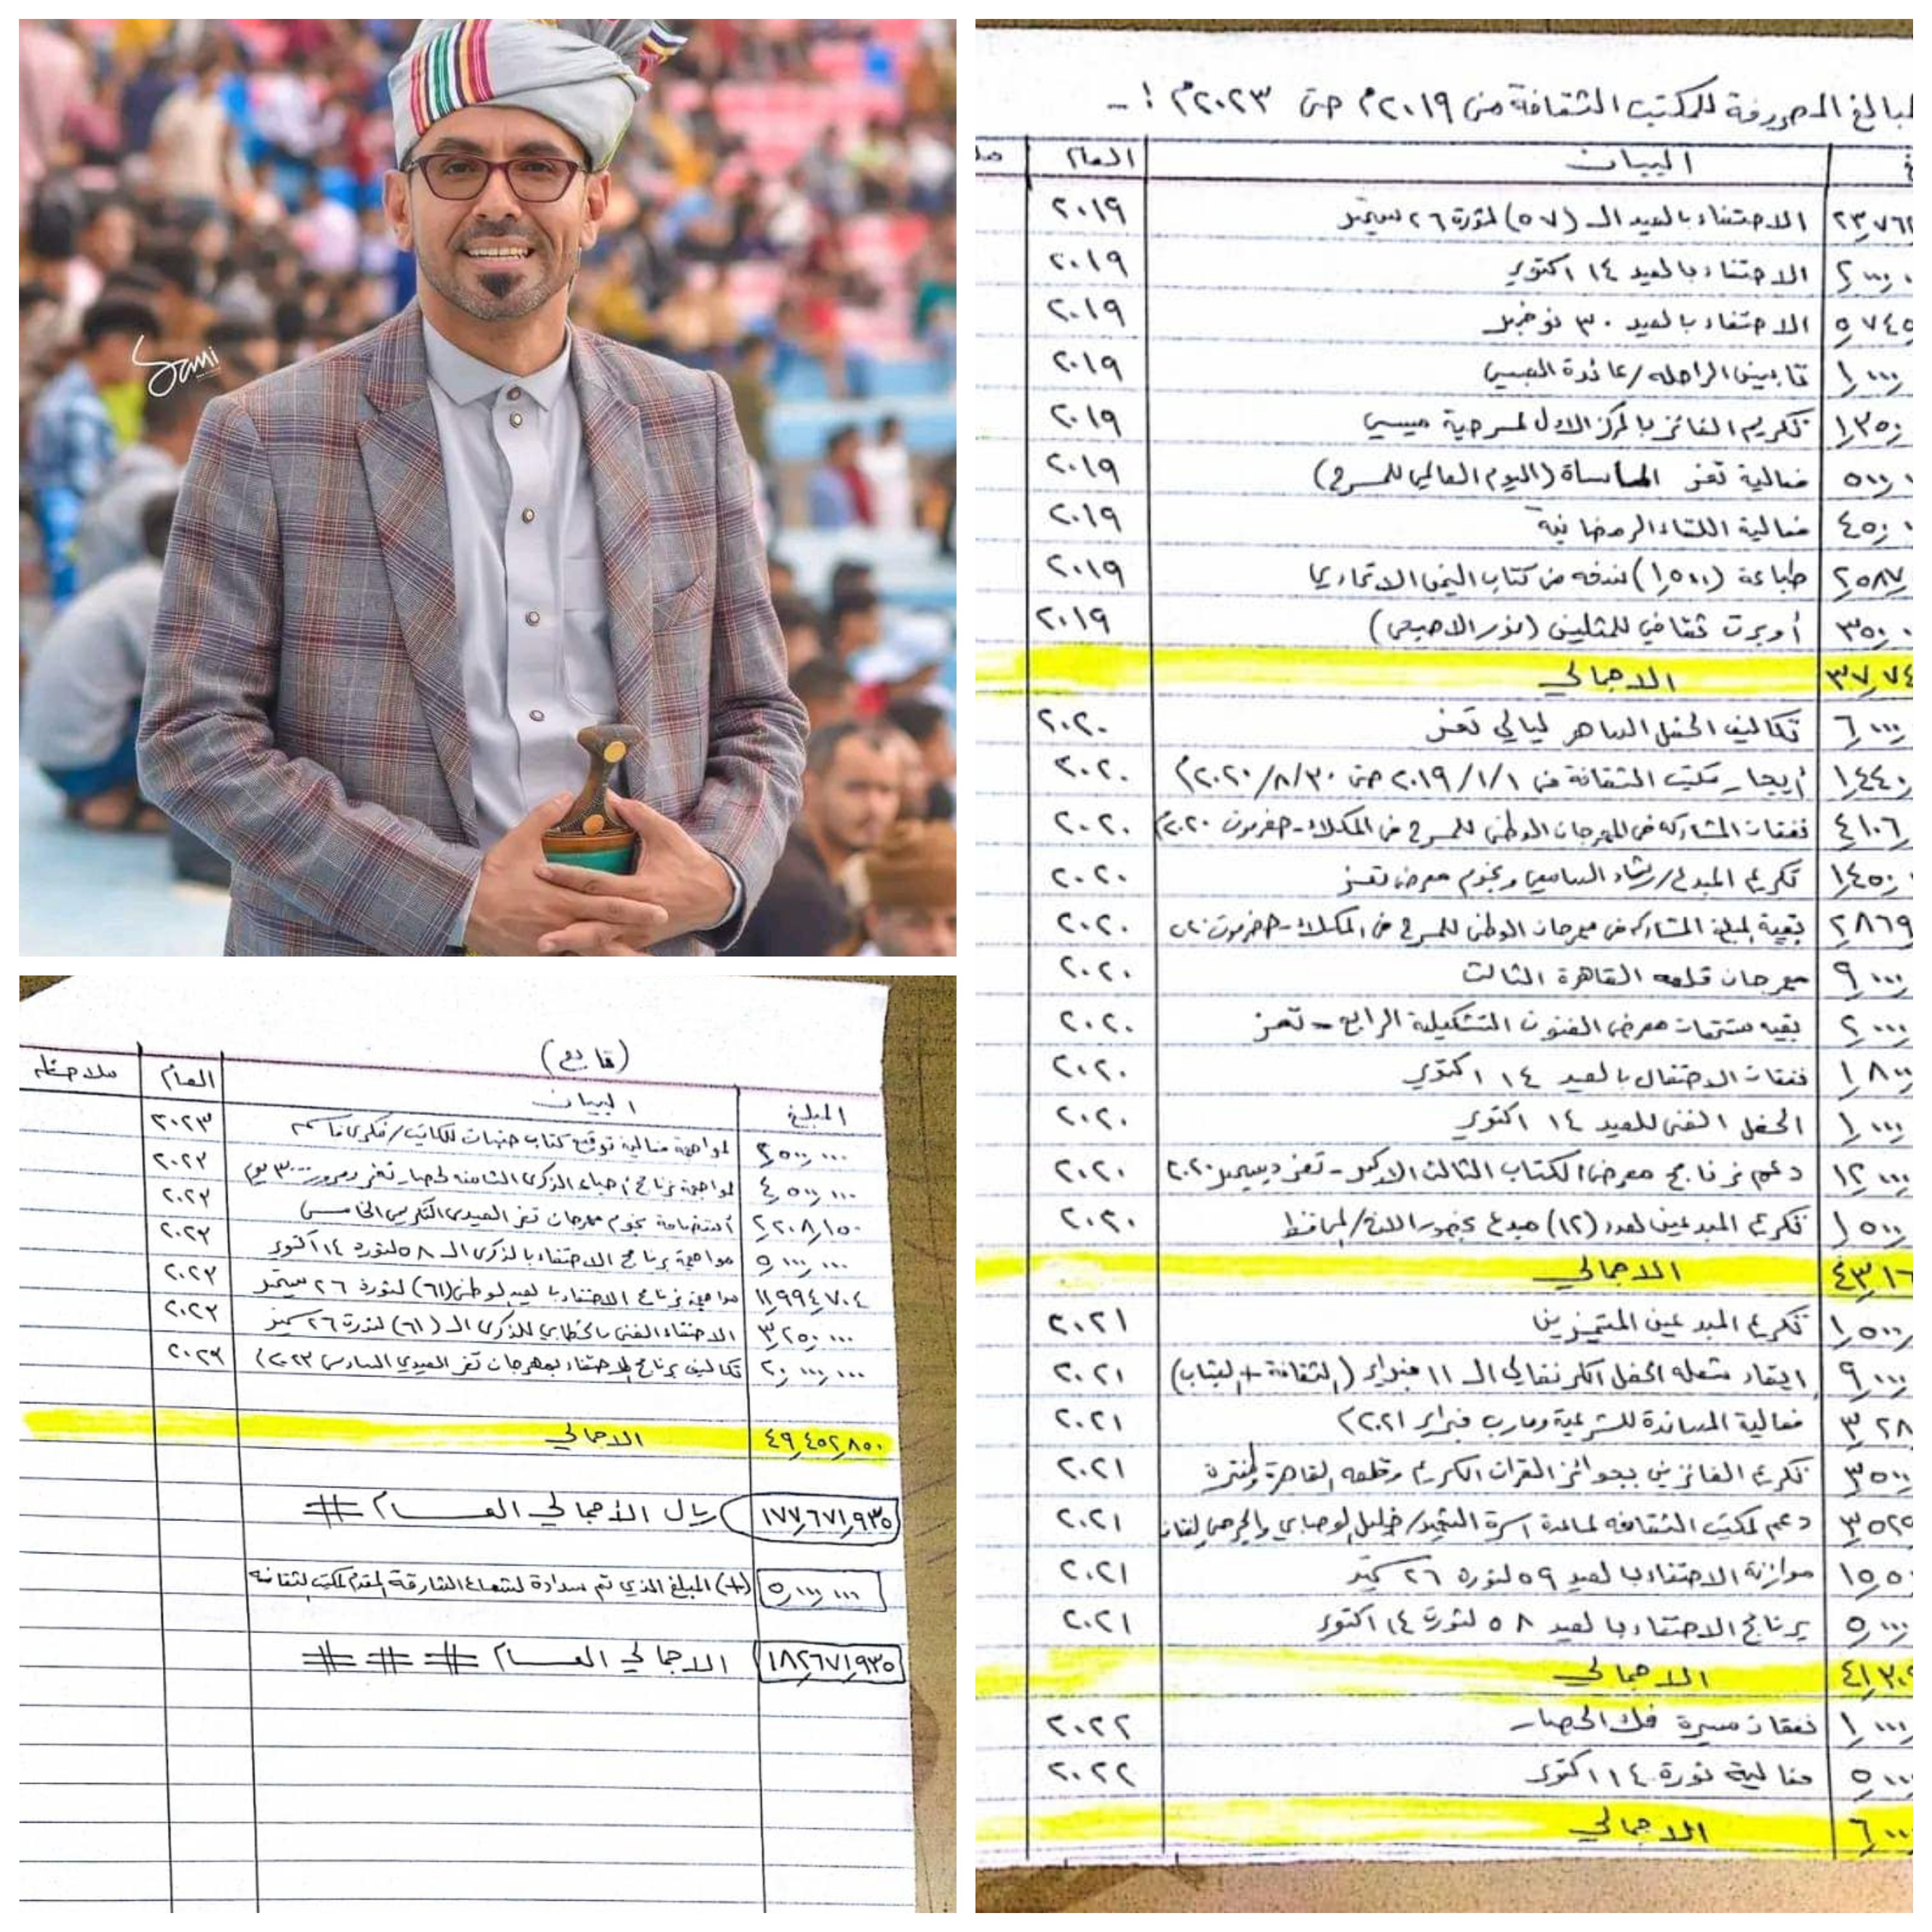 Sami
المبالغ المصروفة للمكتب الثقافة من ٢٠١٩م حتى ٢٠٢٣م :-
البيان العام
الاحتفاء بالعيد الـ (٥٧) لثورة ٢٦ سبتمبر ٢٠١٩
الاحتفاء بالعيد ١٤ اكتوبر ٢٠١٩
الاحتفاء بالعيد ٣٠ نوفمبر ٢٠١٩
تابين الراحله/عائدة العبسي ٢٠١٩
تكريم الفائز بالمركز الاول لمسرحية ميسي ٢٠١٩
فعالية تعز المأساة (اليوم العالمي للمسرح) ٢٠١٩
فعالية اللقاء الرمضانية ٢٠١٩
طباعة (١٥٠٠) نسخه من كتاب اليمن الاتحاديا ٢٠١٩
أوبرت ثقافي للمثلين (نور الاصبحي) ٢٠١٩
الاجمالي
تكاليف الحفل الساهر ليالي تعز ٢٠٢٠
إيجار مكتب الثقافة من ٢٠١٩/١/١ حتى ٢٠٢٠/٨/٣٠م ٢٠٢٠
نفقات المشاركه في المهرجان الوطني للمسرح في المكلا - حضرموت ٢٠٢٠م ٢٠٢٠
تكريم المبدع/رشاد السامعي ونجوم معرض تعز ٢٠٢٠
بقية مبلغ المشاركه في مهرجان الوطني للمسرح في المكلا - حضرموت ٢٠٢٠
مهرجان قلعه القاهرة الثالث ٢٠٢٠
بقيه مستحقات معرض الفنون التشكيلية الرابع - تعز ٢٠٢٠
نفقات الاحتفال بالعيد ١٤ اكتوبر ٢٠٢٠
الحفل الفني للعيد ١٤ اكتوبر ٢٠٢٠
دعم برنامج معرض الكتاب الثالث الاكبر - تعز ديسمبر ٢٠٢٠ ٢٠٢٠
تكريم المبدعين لعدد (١٢) مبدع بحضور الاخ/المحافظ ٢٠٢٠
الاجمالي
تكريم المبدعين المتميزين ٢٠٢١
ايقاد شعله الحفل الكرنفالي الـ ١١ فبراير (الثقافة + الشباب) ٢٠٢١
فعالية المساندة للشرعية ومارب فبراير ٢٠٢١م ٢٠٢١
تكريم الفائزين بجوائز القران الكريم وقلعه القاهرة ٢٠٢١
دعم لمكتب الثقافه لمساندة اسرة الشهيد/خليل الوصابي والجرحى ٢٠٢١
موازنة الاحتفاء با لعيد ٥٩ لثورة ٢٦ سبتمبر ٢٠٢١
برنامج الاحتفاء با لعيد ٥٨ لثورة ١٤ اكتوبر ٢٠٢١
الاجمالي
نفقات مسيرة فك الحصار ٢٠٢٢
فعالية ثورة ١٤ اكتوبر ٢٠٢٢
الاجمالي
(تابع)
المبلغ البيان العام ملاحظه
لمواجهة فعالية توقيع كتاب للكاتب/فكري قاسم ٢٠٢٣
لمواجهة برنامج إحياء الذكرى الثامنه لحصار تعز ومرور ٣٠٠٠ يوم ٢٠٢٣
٢,٢٠٨,١٥٠ نجوم مهرجان تعز العيدي التكريمي الخامس ٢٠٢٣
٥,٠٠٠,٠٠٠ مواجهة برنامج الاحتفاء بالذكرى الـ ٥٨ لثورة ١٤ اكتوبر ٢٠٢٣
١١,٩٩٤,٧٠٤ مواجهة برنامج الاحتفاء با لعيد الوطني (٦١) لثورة ٢٦ سبتمبر ٢٠٢٣
٣,٢٥٠,٠٠٠ الاحتفاء الفني والخطابي للذكرى الـ (٦١) لثورة ٢٦ سبتمبر ٢٠٢٣
٢٠,٠٠٠,٠٠٠ تكاليف برنامج الاحتفاء بمهرجان تعز العيدي السادس ٢٠٢٣م ٢٠٢٣
٤٩,٤٥٢,٨٥٠ الاجمالي
١٧٧,٦٧١,٩٣٥ ريال الأجمالي العــام #
٥,٠٠٠,٠٠٠ (+) المبلغ الذي تم سدادة لشعاع الشارقة المقدم لمكتب الثقافه
١٨٢,٦٧١,٩٣٥ الاجمالي العــام # # #